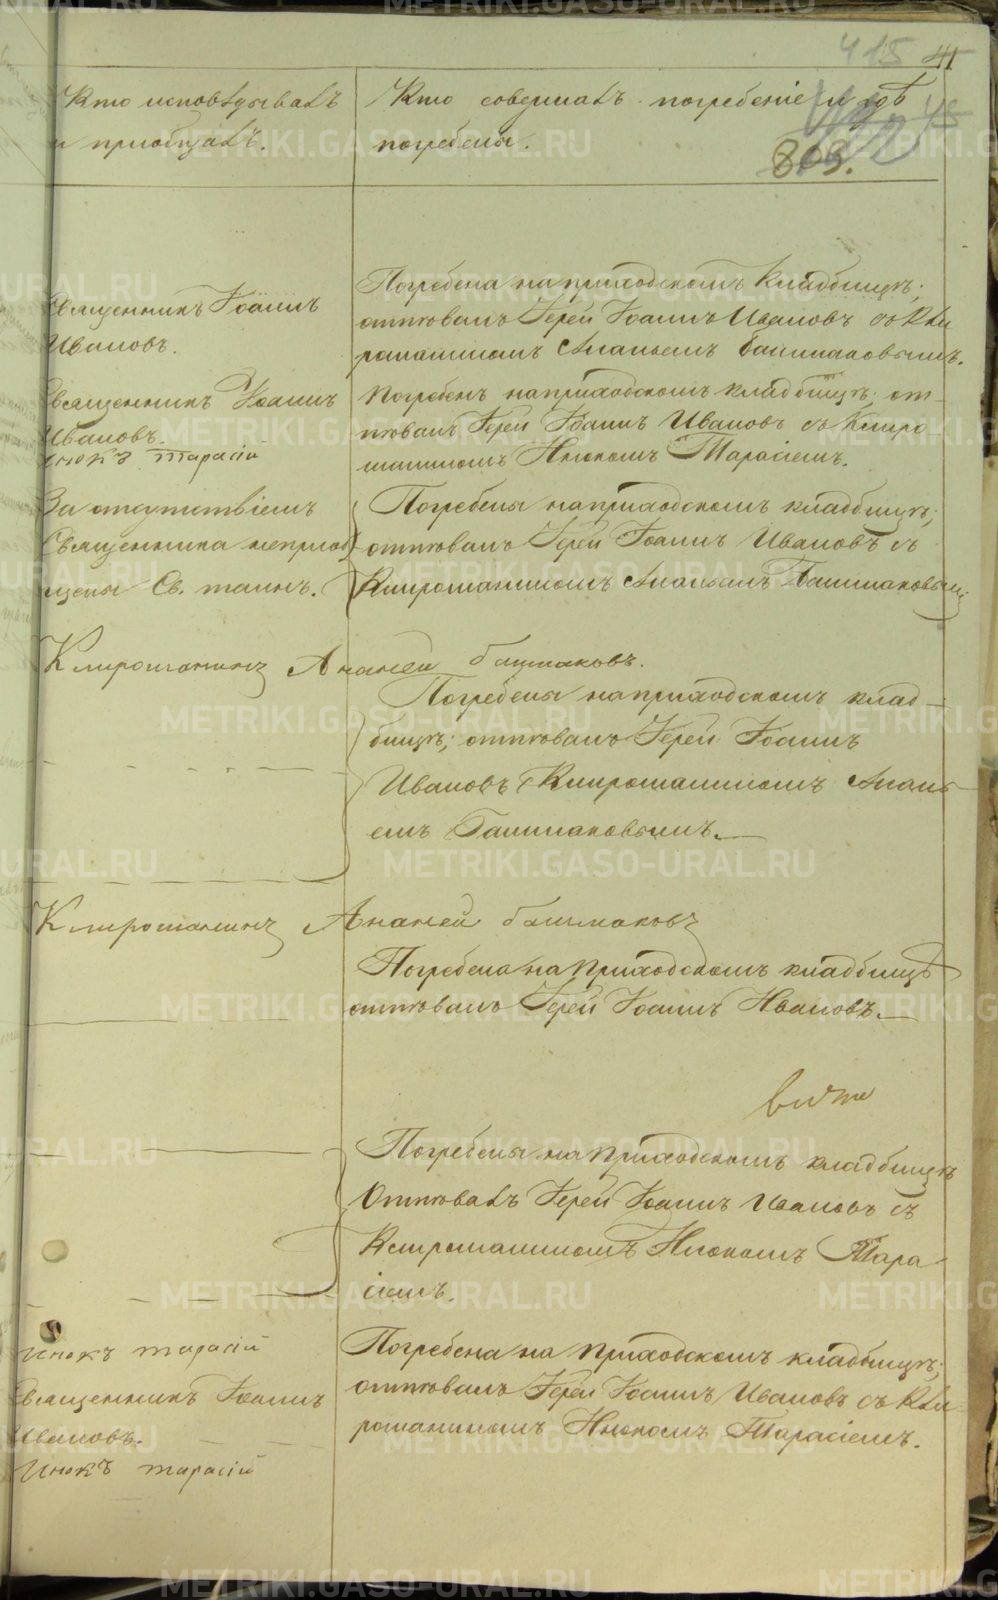 415 41
Кто исповѣдывалъ
и пріобщалъ.
Кто совершалъ погребеніе и гдѣ
погребены.
803.
Священникъ Іоаннъ
Ивановъ.
Погребена на приходскомъ кладбищѣ;
отпѣвалъ Іерей Іоаннъ Ивановъ съ Кли
рошаниномъ Ананьемъ Башмаковымъ.
Священникъ Іоаннъ
Ивановъ.
инокъ Тарасій
Погребенъ на приходскомъ кладбищѣ; от-
пѣвалъ Іерей Іоаннъ Ивановъ съ Клиро
шаниномъ Инокомъ Тарасіемъ.
За отсутствіемъ
Священника непріоб
щены Св. таинъ.
Погребены на приходскомъ кладбищѣ;
отпѣвалъ Іерей Іоаннъ Ивановъ съ
Клирошаниномъ Ананьемъ Башмаковым
Клирошанинъ Ананей башмаковъ.
Погребены на приходскомъ клад-
бищѣ; отпѣвалъ Іерей Іоаннъ
Ивановъ с Клирошаниномъ Анань
емъ Башмаковымъ.
Клирошанинъ Ананей башмаковъ
Погребена на Приходскомъ кладбищѣ
отпѣвалъ Іерей Іоаннъ Ивановъ.
Погребены на Приходскомъ кладбищѣ
Отпѣвалъ Іерей Іоаннъ Ивановъ съ
Клирошаниномъ Инокомъ Тара-
сіемъ.
Инокъ тарасій
Священникъ Іоаннъ
Ивановъ.
Инокъ тарасій
Погребена на Приходскомъ кладбищѣ;
отпѣвалъ Іерей Іоаннъ Ивановъ съ Кли
рошаниномъ Инокомъ Тарасіемъ.
METRIKI.GASO-URAL.RU